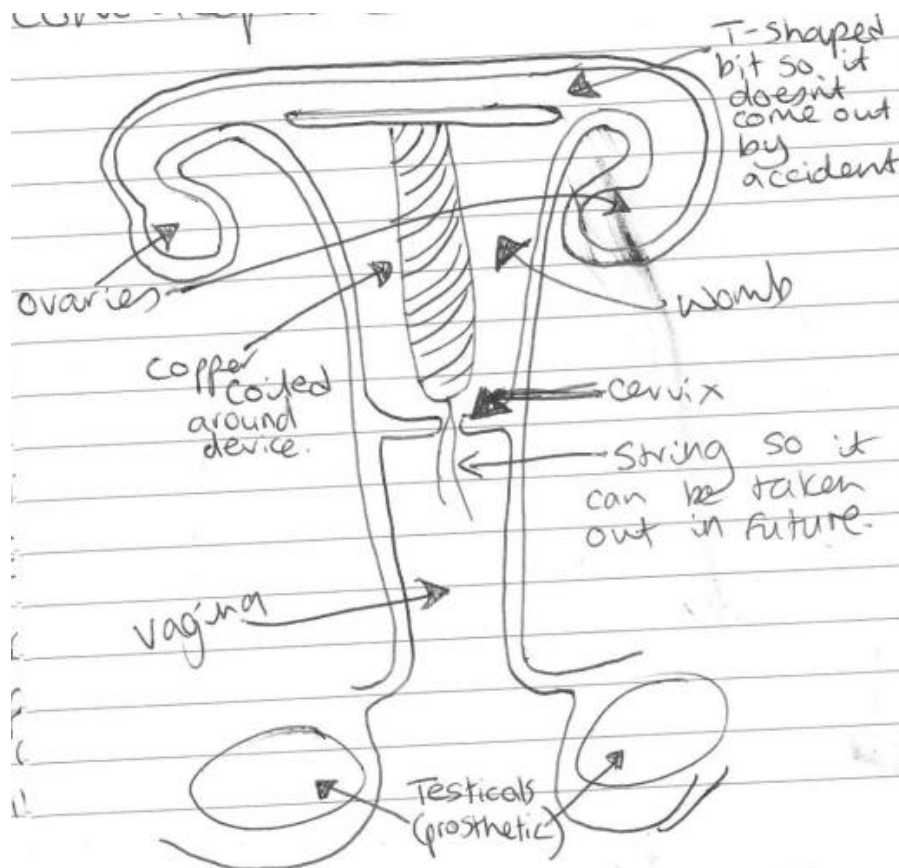 T-shaped
bit so it
doesn't
come out
by
accident
ovaries
womb
copper
coiled
around
device.
cervix
string so it
can be taken
out in future.
vagina
Testicals
(prosthetic)